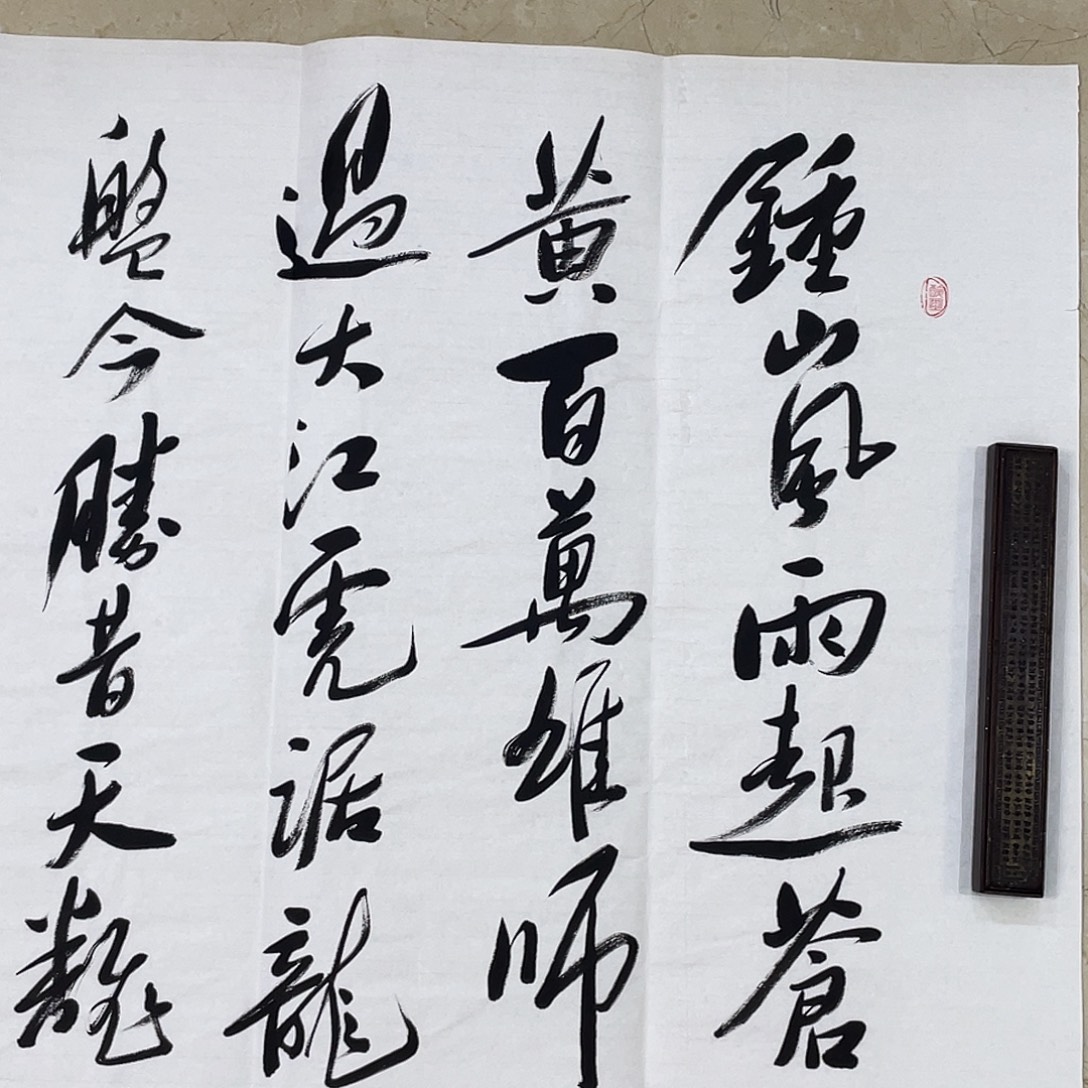 鍾山風雨起蒼
黄百萬雄師
過大江虎踞龍
盤今勝昔天翻